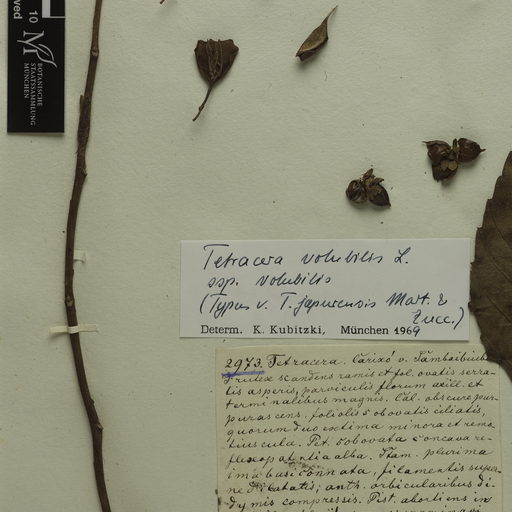 10
BOTANISCHE
STAATSSAMMLUNG
MÜNCHEN
Tetracera volubilis L.
ssp. volubilis
(Typus v. T. japurensis Mart. &
Zucc.)
Determ. K. Kubitzki, München 1969
2973. Tetracera. Carixó v.
Frutex scandens ramis et fol. ovatis serra-
tis asperis, parviculis florum axill. et
terminalibus magnis. Cal. obscure pur-
purascens. foliolis 5 obovatis ciliatis,
quorum duo extima minora et remo-
tiuscula. Pet. 5 obovata concava re-
flexo patentia alba. Stam. plurima
ima basi connata, filamentis super-
ne dilatatis; anth. orbicularibus di-
dymis compressis. Pist. abortiens in